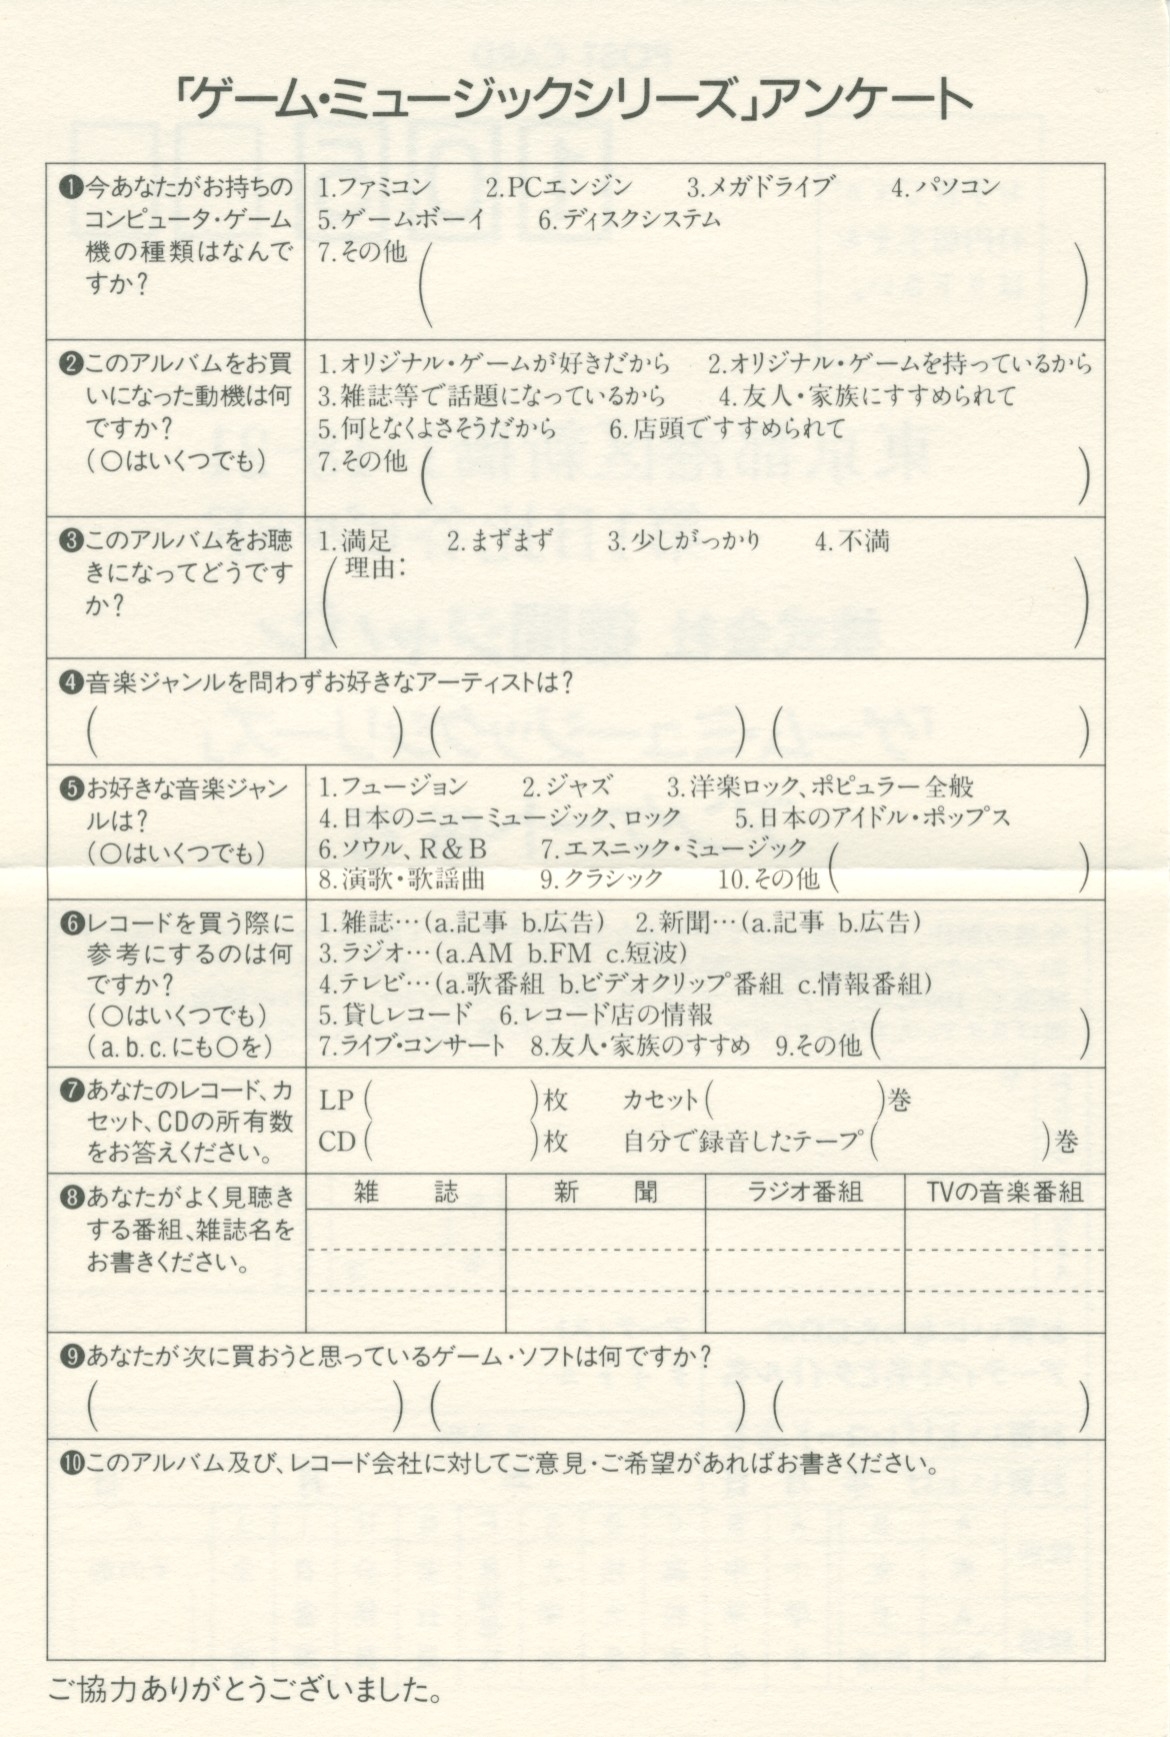 「ゲーム・ミュージックシリーズ」アンケート
❶今あなたがお持ちの
コンピュータ・ゲーム
機の種類はなんで
すか？
1.ファミコン 2.PCエンジン 3.メガドライブ 4.パソコン
5.ゲームボーイ 6.ディスクシステム
7.その他( )
❷このアルバムをお買
いになった動機は何
ですか？
（○はいくつでも）
1.オリジナル・ゲームが好きだから 2.オリジナル・ゲームを持っているから
3.雑誌等で話題になっているから 4.友人・家族にすすめられて
5.何となくよさそうだから 6.店頭ですすめられて
7.その他( )
❸このアルバムをお聴
きになってどうです
か？
1.満足 2.まずまず 3.少しがっかり 4.不満
(理由： )
❹音楽ジャンルを問わずお好きなアーティストは？
( ) ( ) ( )
❺お好きな音楽ジャン
ルは？
（○はいくつでも）
1.フュージョン 2.ジャズ 3.洋楽ロック、ポピュラー全般
4.日本のニューミュージック、ロック 5.日本のアイドル・ポップス
6.ソウル、R＆B 7.エスニック・ミュージック
8.演歌・歌謡曲 9.クラシック 10.その他( )
❻レコードを買う際に
参考にするのは何
ですか？
（○はいくつでも）
（a.b.c.にも○を）
1.雑誌…(a.記事 b.広告) 2.新聞…(a.記事 b.広告)
3.ラジオ…(a.AM b.FM c.短波)
4.テレビ…(a.歌番組 b.ビデオクリップ番組 c.情報番組)
5.貸しレコード 6.レコード店の情報
7.ライブ・コンサート 8.友人・家族のすすめ 9.その他( )
❼あなたのレコード、カ
セット、CDの所有数
をお答えください。
LP( )枚 カセット( )巻
CD( )枚 自分で録音したテープ( )巻
❽あなたがよく見聴き
する番組、雑誌名を
お書きください。
雑　誌 新　聞 ラジオ番組 TVの音楽番組
❾あなたが次に買おうと思っているゲーム・ソフトは何ですか？
( ) ( ) ( )
❿このアルバム及び、レコード会社に対してご意見・ご希望があればお書きください。
ご協力ありがとうございました。